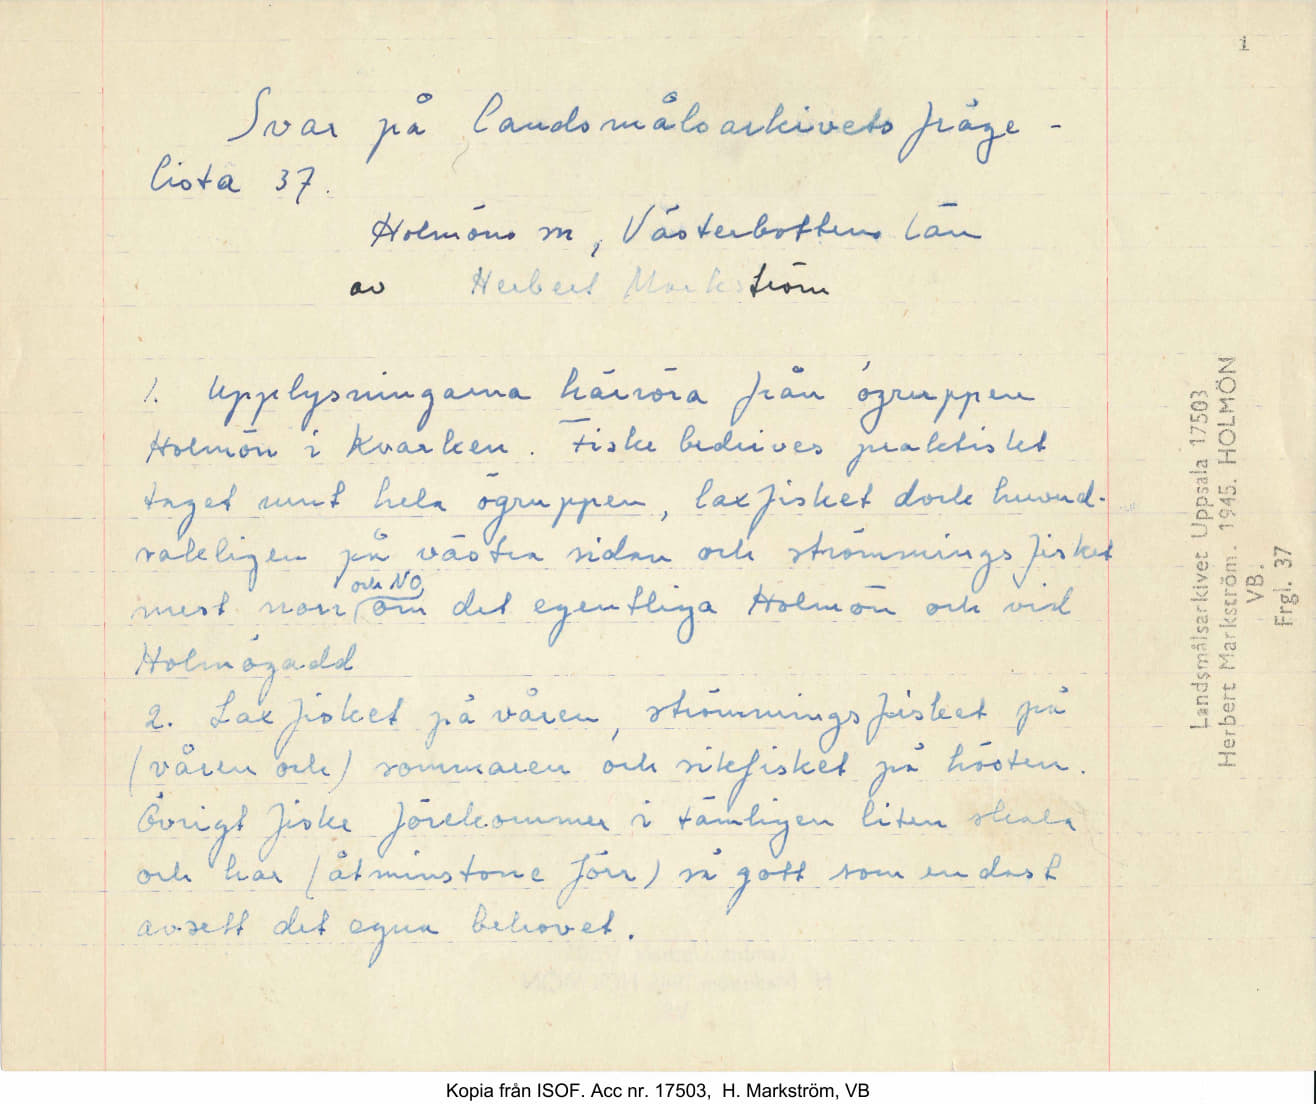 1
Svar på landsmålsarkivets fråge-
lista 37.
Holmöns sn, Västerbottens län
av Herbert Markström
1. Upplysningarna härröra från ögruppen
Holmön i Kvarken. Fiske bedrives praktiskt
taget runt hela ögruppen, laxfisket dock huvud-
sakligen på västra sidan och strömmingsfisket
mest norr och NO om det egentliga Holmön och vid
Holmögadd
2. Laxfisket på våren, strömmingsfisket på
(våren och) sommaren och sikfisket på hösten.
Övrigt fiske förekommer i tämligen liten skala
och har (åtminstone förr) så gott som endast
avsett det egna behovet.
Landsmålsarkivet Uppsala 17503
Herbert Markström. 1945. HOLMÖN
VB.
Frgl. 37
Kopia från ISOF. Acc nr. 17503, H. Markström, VB